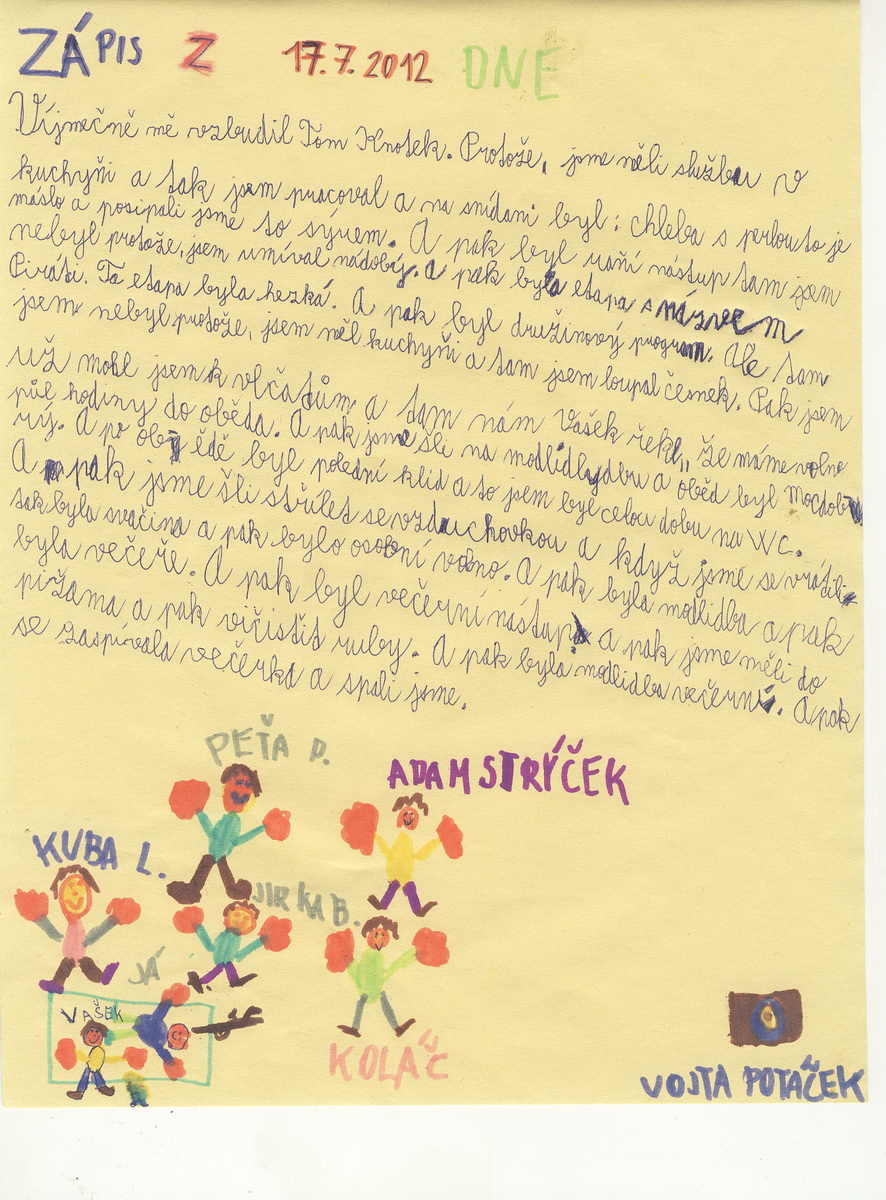 ZÁPIS Z 17.7.2012 DNE
Víjmečně mě vzbudil Tom Knotek. Protože, jsme měli službu v
kuchyňi a tak jsem pracoval a na snídani byl: chleba s perlou to je
máslo a posipali jsme to sýrem. A pak byl raňí nástup tam jsem
nebyl protože, jsem umíval nádobý. A pak byla etapa s názvem
Piráti. Ta etapa byla hezká. A pak byl družinový program. Ale tam
jsem nebyl protože, jsem měl kuchyňi a tam jsem loupal česnek. Pak jsem
už mohl jsem k vlčatům a tam nám Vašek řekl,, že máme volno
půl hodiny do oběda. A pak jsme šli na modlidlydbu a oběd byl
rý. A po obědě byl polední klid a to jsem byl celou dobu na WC.
A pak jsme šli střílet se vzduchovkou a když jsme se vrátili
tak byla svačina a pak bylo osobní volno. A pak byla modlidba a pak
byla večeře. A pak byl večerní nástup a pak jsme měli do
pižama a pak vičistit zuby. A pak byla modlidba večerní. A pak
se zaspívala večerka a spali jsme.
PEŤA P.
ADAM STRÝČEK
KUBA L.
JIRKA B.
JÁ
VAŠEK
KOLÁČ
VOJTA POTÁČEK